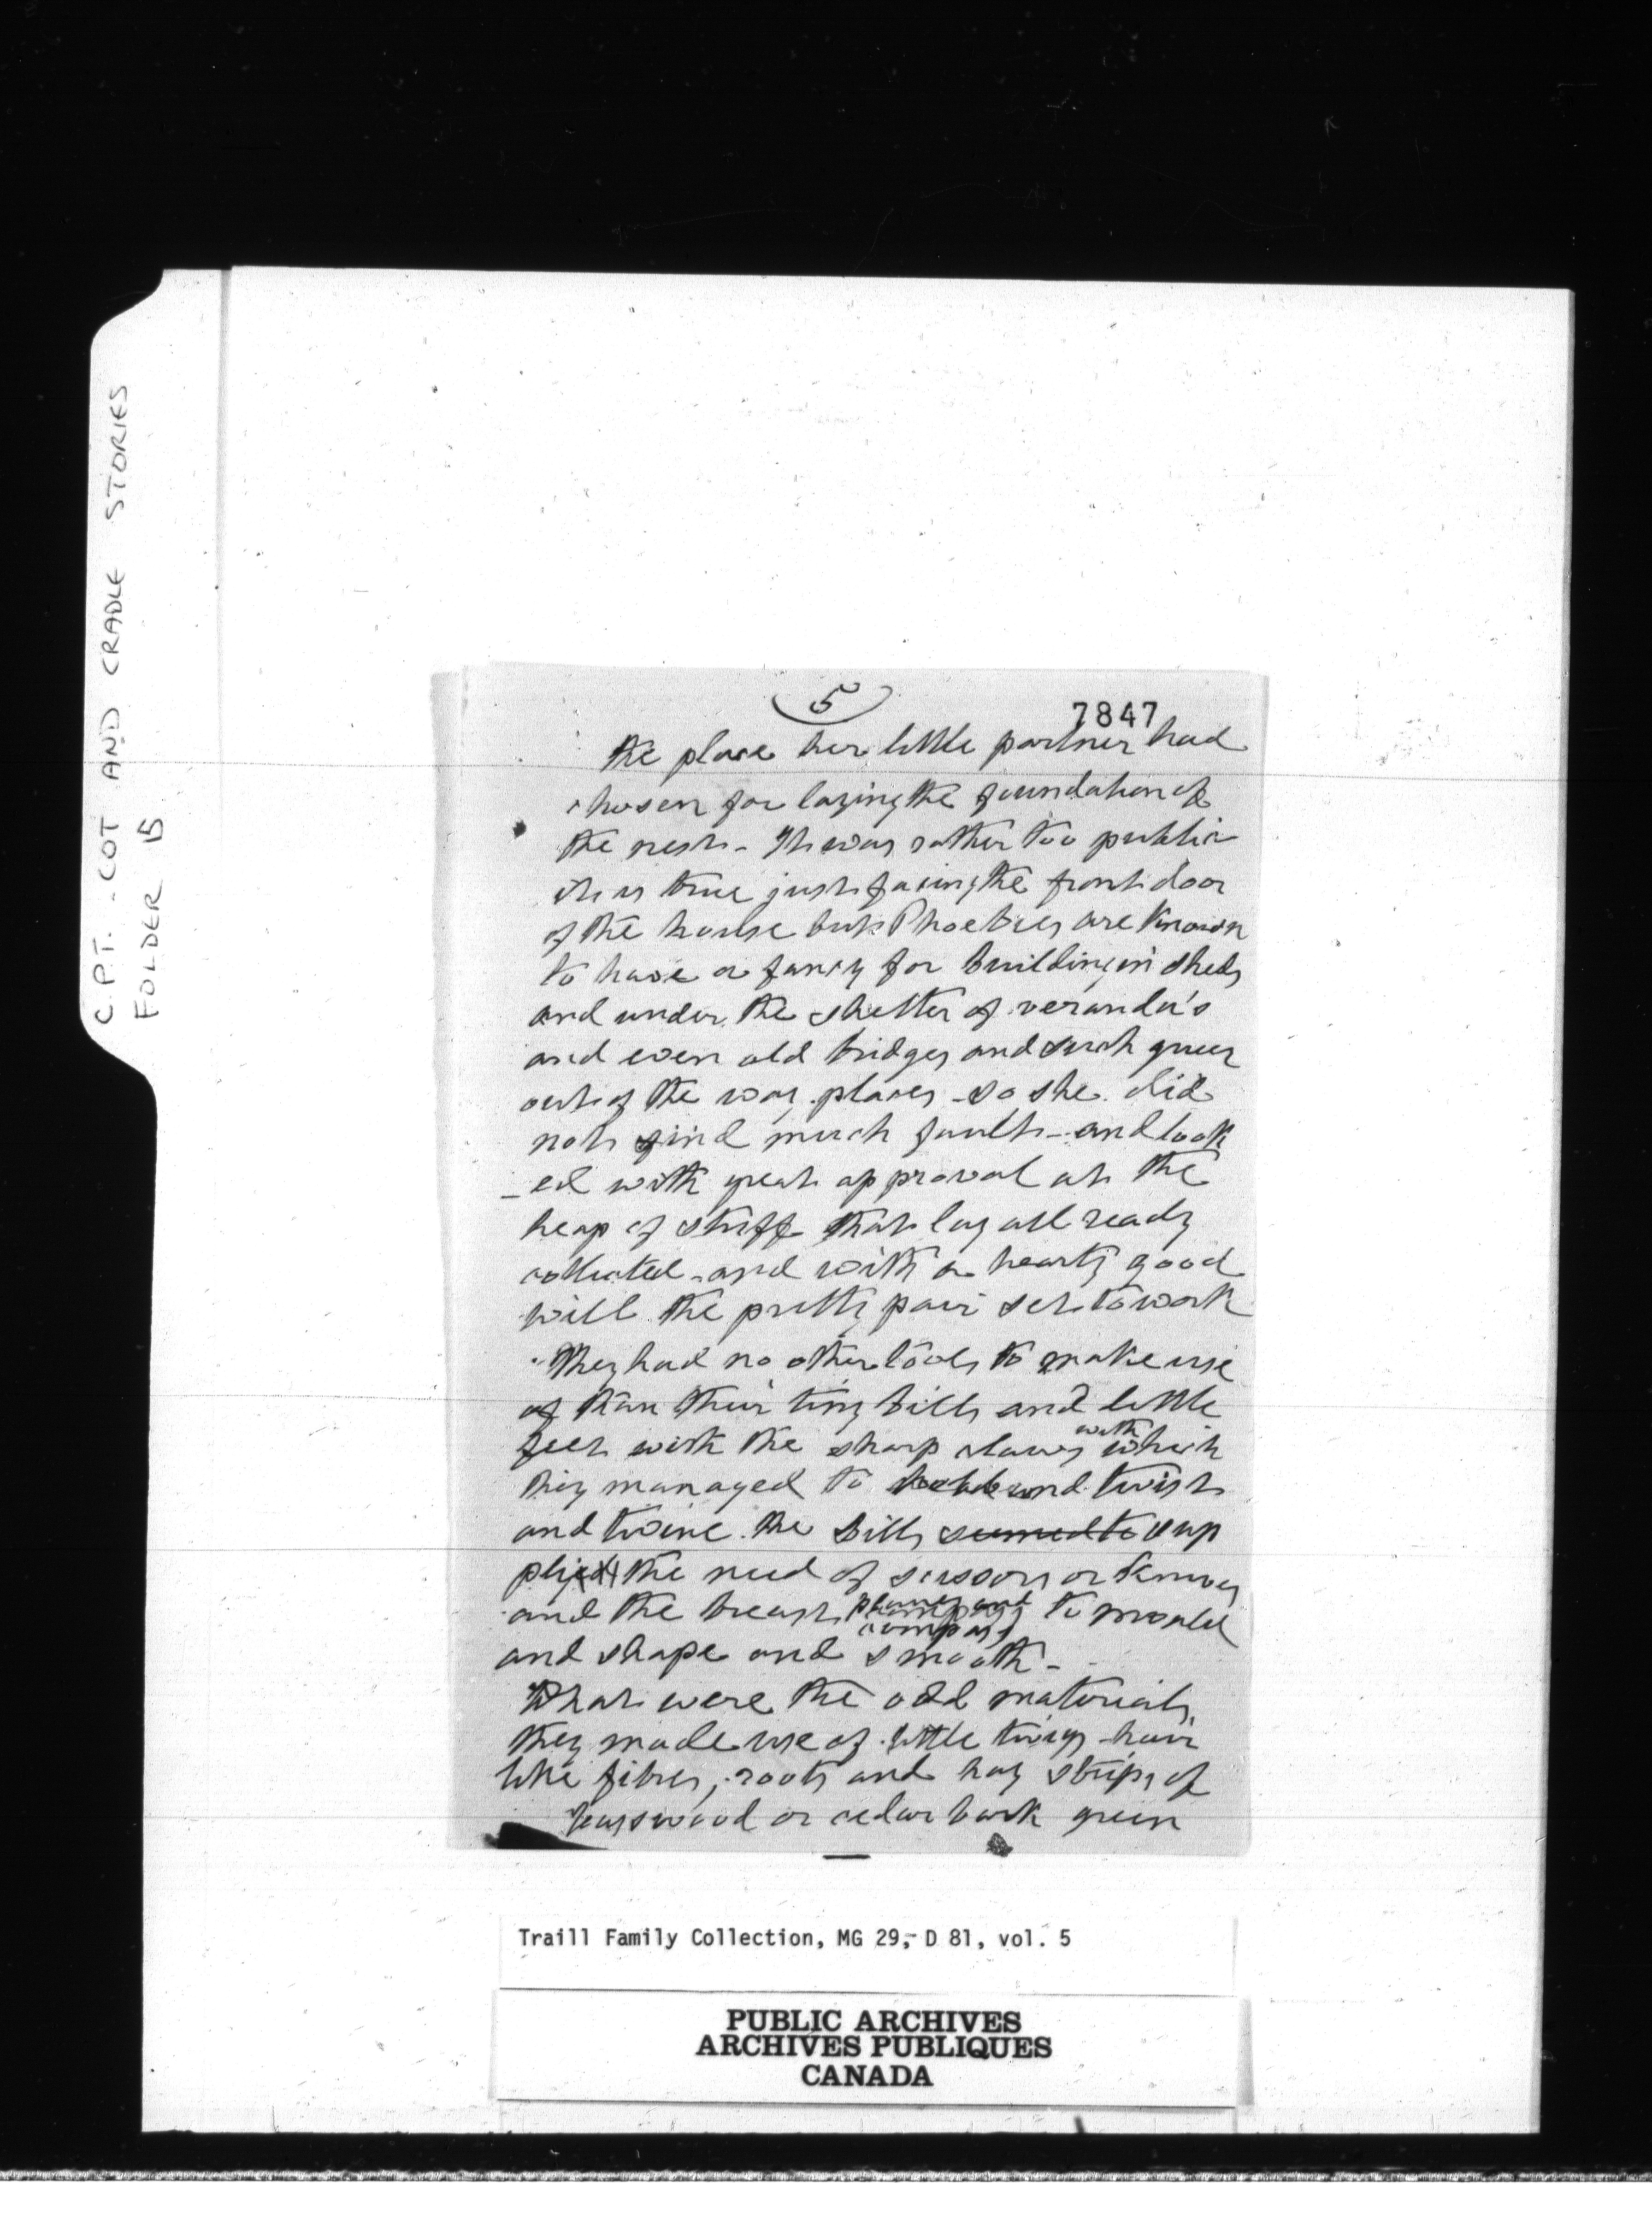 C.P.T. - COT AND CRADLE STORIES
FOLDER 15
5
7847
the place her little partner had
chosen for laying the foundation of
the nest - It was rather too public
it is true just facing the front door
of the house but Phoebies are known
to have a fancy for building in sheds
and under the shelter of veranda's
and even old bridges and such queer
out of the way places - so she did
not find much fault - and look
-ed with great approval at the
heap of stuff that lay all ready
collected - and with a hearty good
will the pretty pair set to work
They had no other tools to make use
of than their tiny bills and little
feet with the sharp claws with which
they managed to and twist
and twine. The bills seemed to sup
plied the need of scissors or knives
and the breast to mould
and shape and smooth -
What were the odd materials,
they made use of little twigs - hair
like fibres, roots and hay strips of
basswood or cedar bark green
Traill Family Collection, MG 29, D 81, vol. 5
PUBLIC ARCHIVES
ARCHIVES PUBLIQUES
CANADA